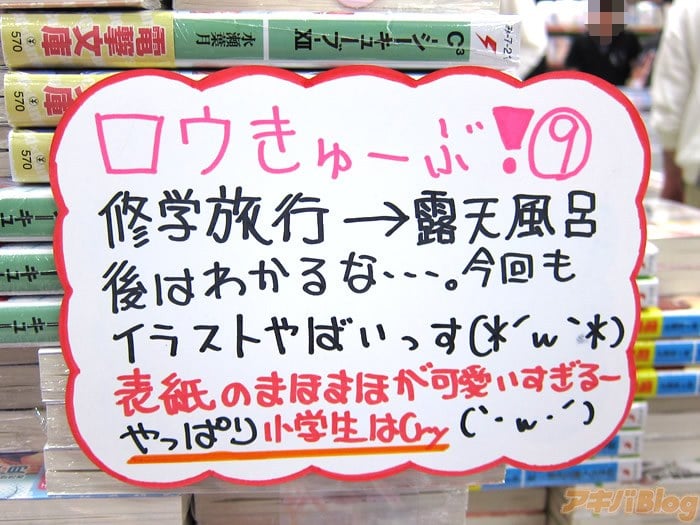 電撃文庫
水瀬葉月
シーキューブXII
C³
み-7-21
570
570
570
ロウきゅーぶ!⑨
修学旅行→露天風呂
後はわかるな…。今回も
イラストやばいっす(*´ω`*)
表紙のまほまほが可愛いすぎる~
やっぱり小学生は (`・ω・´)
アキバBlog